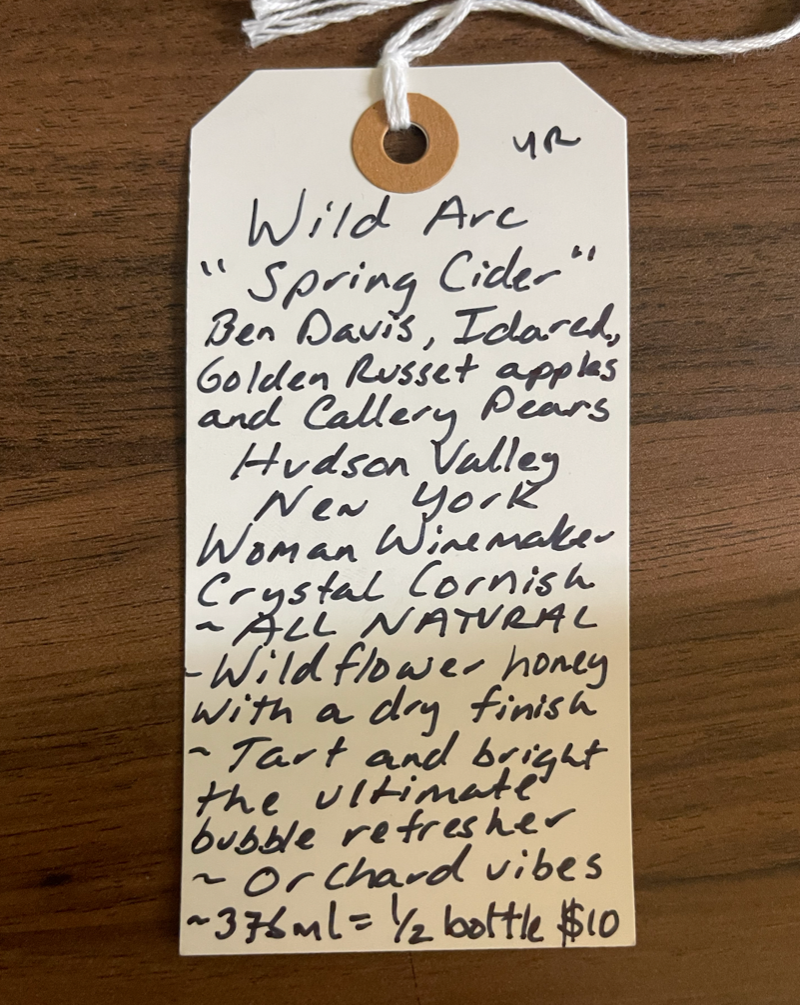 YR
Wild Arc
"Spring Cider"
Ben Davis, Idared,
Golden Russet apples
and Callery Pears
Hudson Valley
New York
Woman Winemaker
Crystal Cornish
~ ALL NATURAL
~Wildflower honey
with a dry finish
~ Tart and bright
the ultimate
bubble refresher
~ Orchard vibes
~375ml = 1/2 bottle $10